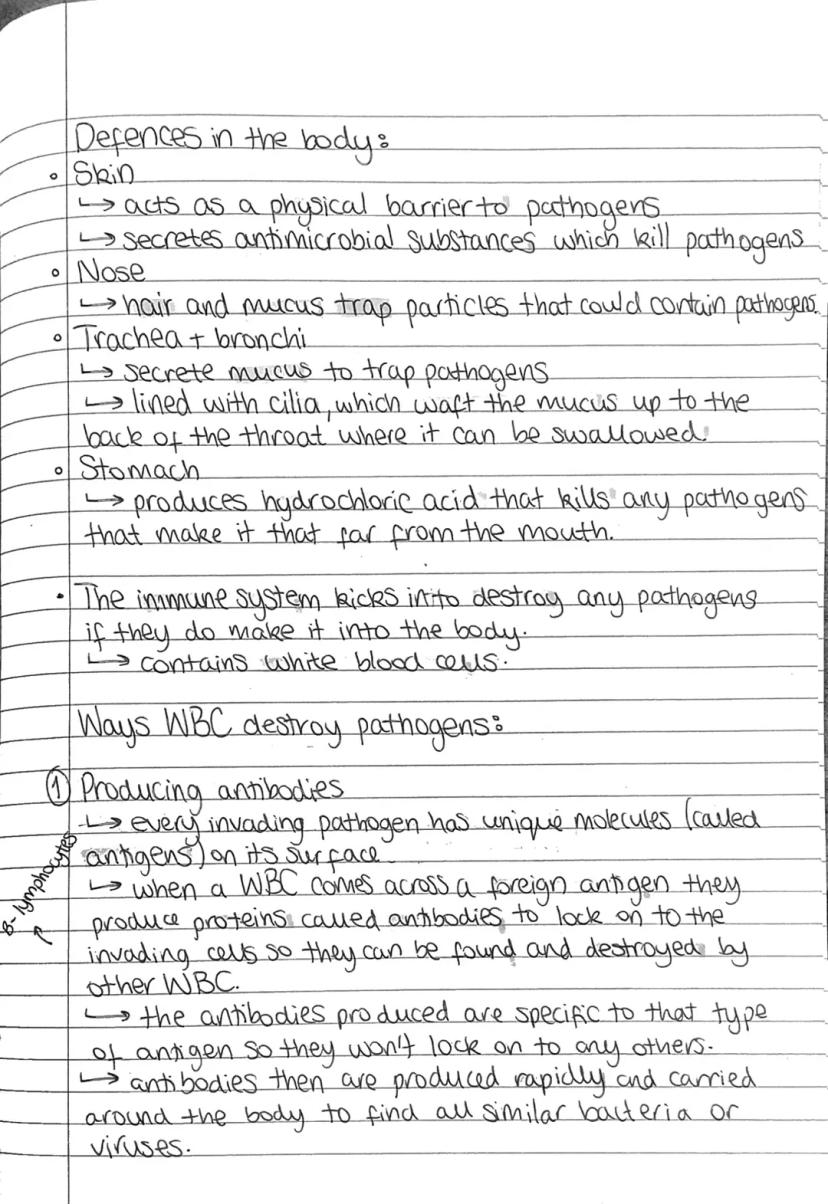 Defences in the body:
∘ Skin
↳ acts as a physical barrier to pathogens
↳ secretes antimicrobial substances which kill pathogens
∘ Nose
↳ hair and mucus trap particles that could contain pathogens.
∘ Trachea + bronchi
↳ secrete mucus to trap pathogens
↳ lined with cilia, which waft the mucus up to the
back of the throat where it can be swallowed.
∘ Stomach
↳ produces hydrochloric acid that kills any pathogens
that make it that far from the mouth.
• The immune system kicks in to destroy any pathogens
if they do make it into the body.
↳ contains white blood cells.
Ways WBC destroy pathogens:
① Producing antibodies
↳ every invading pathogen has unique molecules (called
antigens) on its surface
↳ when a WBC comes across a foreign antigen they
produce proteins called antibodies to lock on to the
invading cells so they can be found and destroyed by
other WBC.
↳ the antibodies produced are specific to that type
of antigen so they won't lock on to any others.
↳ antibodies then are produced rapidly and carried
around the body to find all similar bacteria or
viruses.
B-lymphocytes
↑